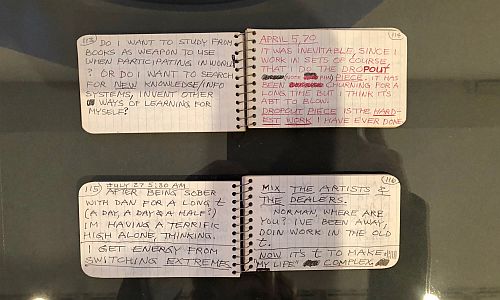 113
DO I WANT TO STUDY FROM
BOOKS AS WEAPON TO USE
WHEN PARTICIPATING IN WORLD
? OR DO I WANT TO SEARCH
FOR NEW KNOWLEDGE/INFO
SYSTEMS, INVENT OTHER
WAYS OF LEARNING FOR
MYSELF?
114
APRIL 5, 70
IT WAS INEVITABLE, SINCE I
WORK IN SETS OF COURSE,
THAT I DO THE DROPOUT
(NOTE PIN) PIECE. IT HAS
BEEN CHURNING FOR A
LONG TIME BUT I THINK ITS
ABT TO BLOW.
DROPOUT PIECE IS THE HARD-
EST WORK I HAVE EVER DONE
115
JULY 27 5:30 AM
AFTER BEING SOBER
WITH DAN FOR A LONG t
(A DAY, A DAY & A HALF?)
I'M HAVING A TERRIFIC
HIGH ALONE, THINKING.
I GET ENERGY FROM
SWITCHING EXTREMES
116
MIX THE ARTISTS &
THE DEALERS.
NORMAN, WHERE ARE
YOU? I'VE BEEN AWAY,
DOIN WORK IN THE OLD
t.
NOW IT'S t TO MAKE
"MY LIFE" COMPLEX